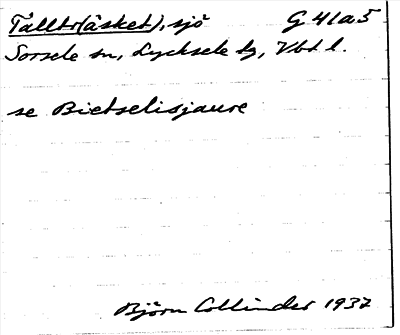 Tallträsket), sjö G 41a5
Sorsele sn, Lycksele tg, Vbt l.
se Bietselisjaure
Björn Collinder 1937